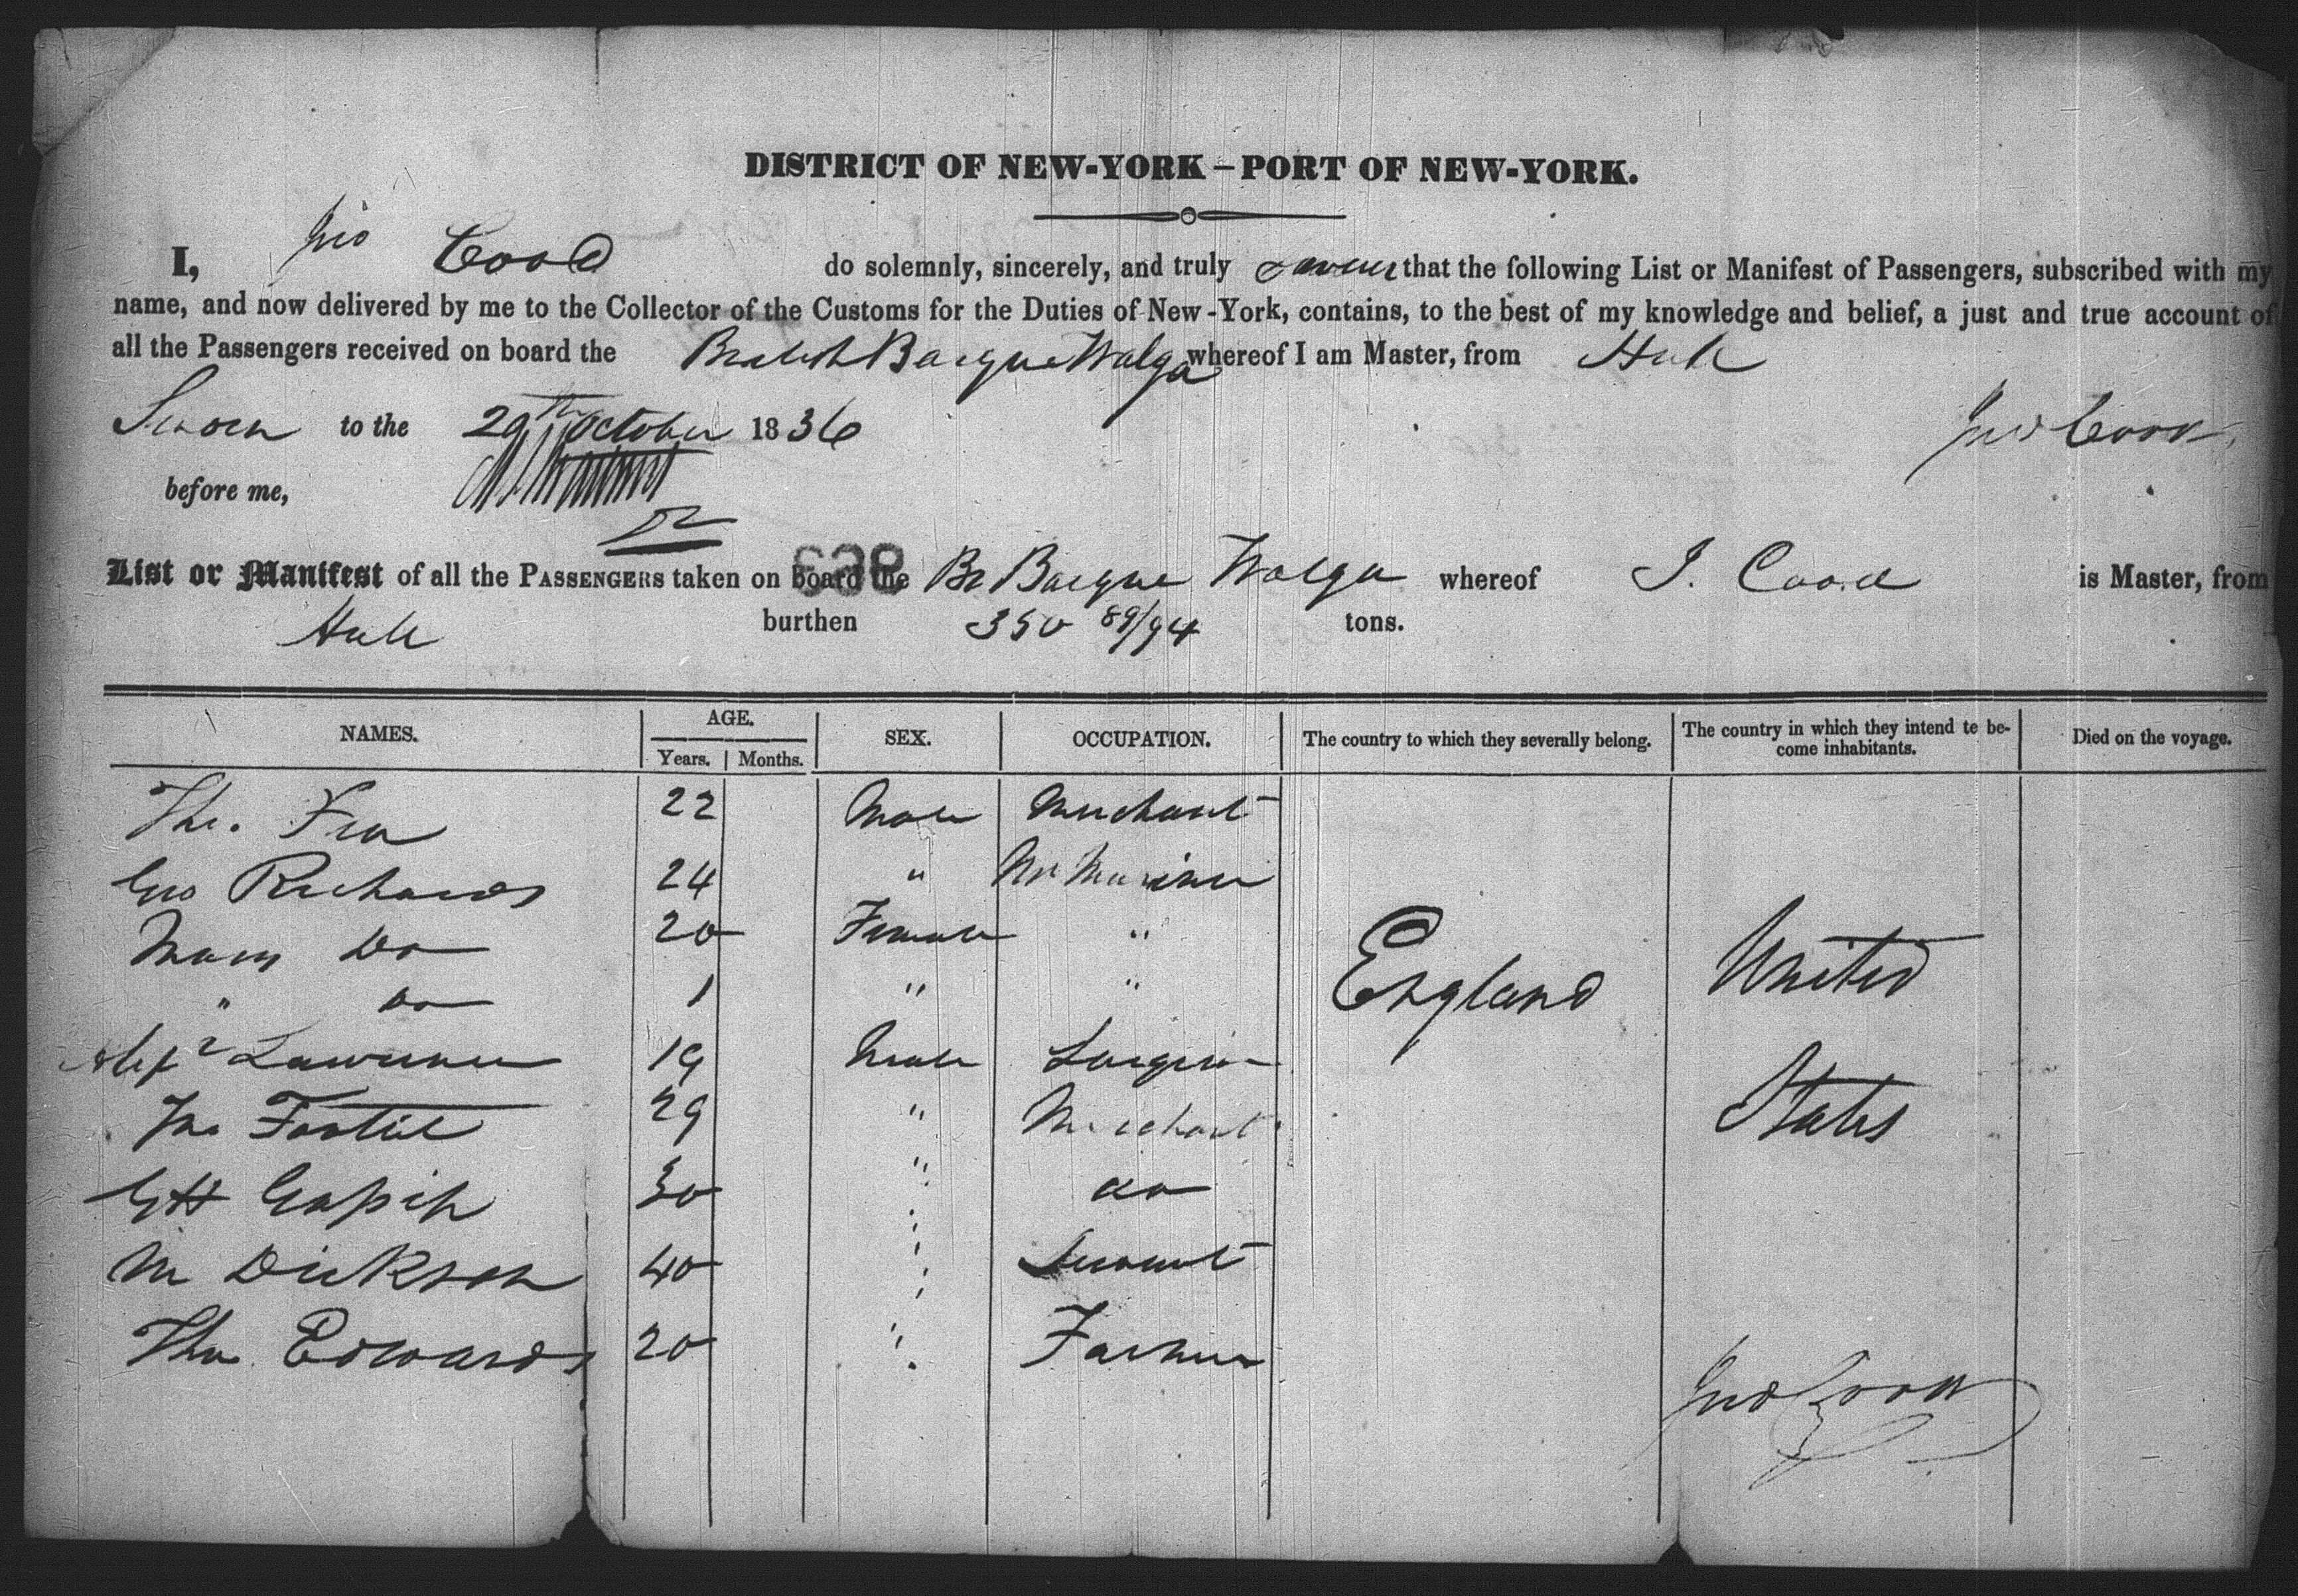 DISTRICT OF NEW-YORK – PORT OF NEW-YORK.
I, Jno Cood do solemnly, sincerely, and truly swear that the following List or Manifest of Passengers, subscribed with my
name, and now delivered by me to the Collector of the Customs for the Duties of New-York, contains, to the best of my knowledge and belief, a just and true account of
all the Passengers received on board the British Barque Wolga whereof I am Master, from Hull
Sworn to the 29th October 1836 Jno Cood
before me,
List or Manifest of all the PASSENGERS taken on board the Br Barque Wolga whereof J. Cood is Master, from
Hull burthen 350 89/94 tons.
NAMES. AGE. Years. Months. SEX. OCCUPATION. The country to which they severally belong. The country in which they intend te become inhabitants. Died on the voyage.
Tho. Fea 22 Male Merchant
Geo Richards 24 " Mariner
Mary Do 20 Female "
" do 1 " "
Alexr Lawrence 19 Male Surgeon
Jno 29 " Merchant
GH 30 " do
M Dickson 40 " Servant
Tho. Edwards 20 " Farmer
England
United
States
Jno Cood